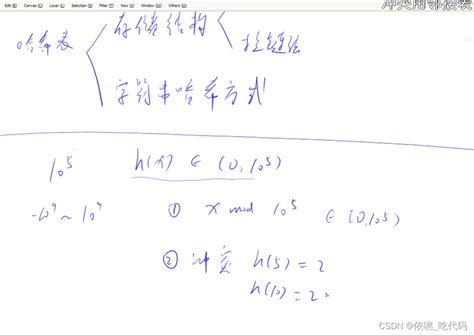 Edit Pen Canvas View Window Others
冲突用邻接表
哈希表 存储结构 拉链法
字符串哈希方式
10^5 h(x) ∈ (0, 10^5)
-10^9 ~ 10^9 ① x mod 10^5 ∈ [0, 10^5)
② 冲突 h(5) = 2
h(10) = 2
CSDN @依嘫_吃代码